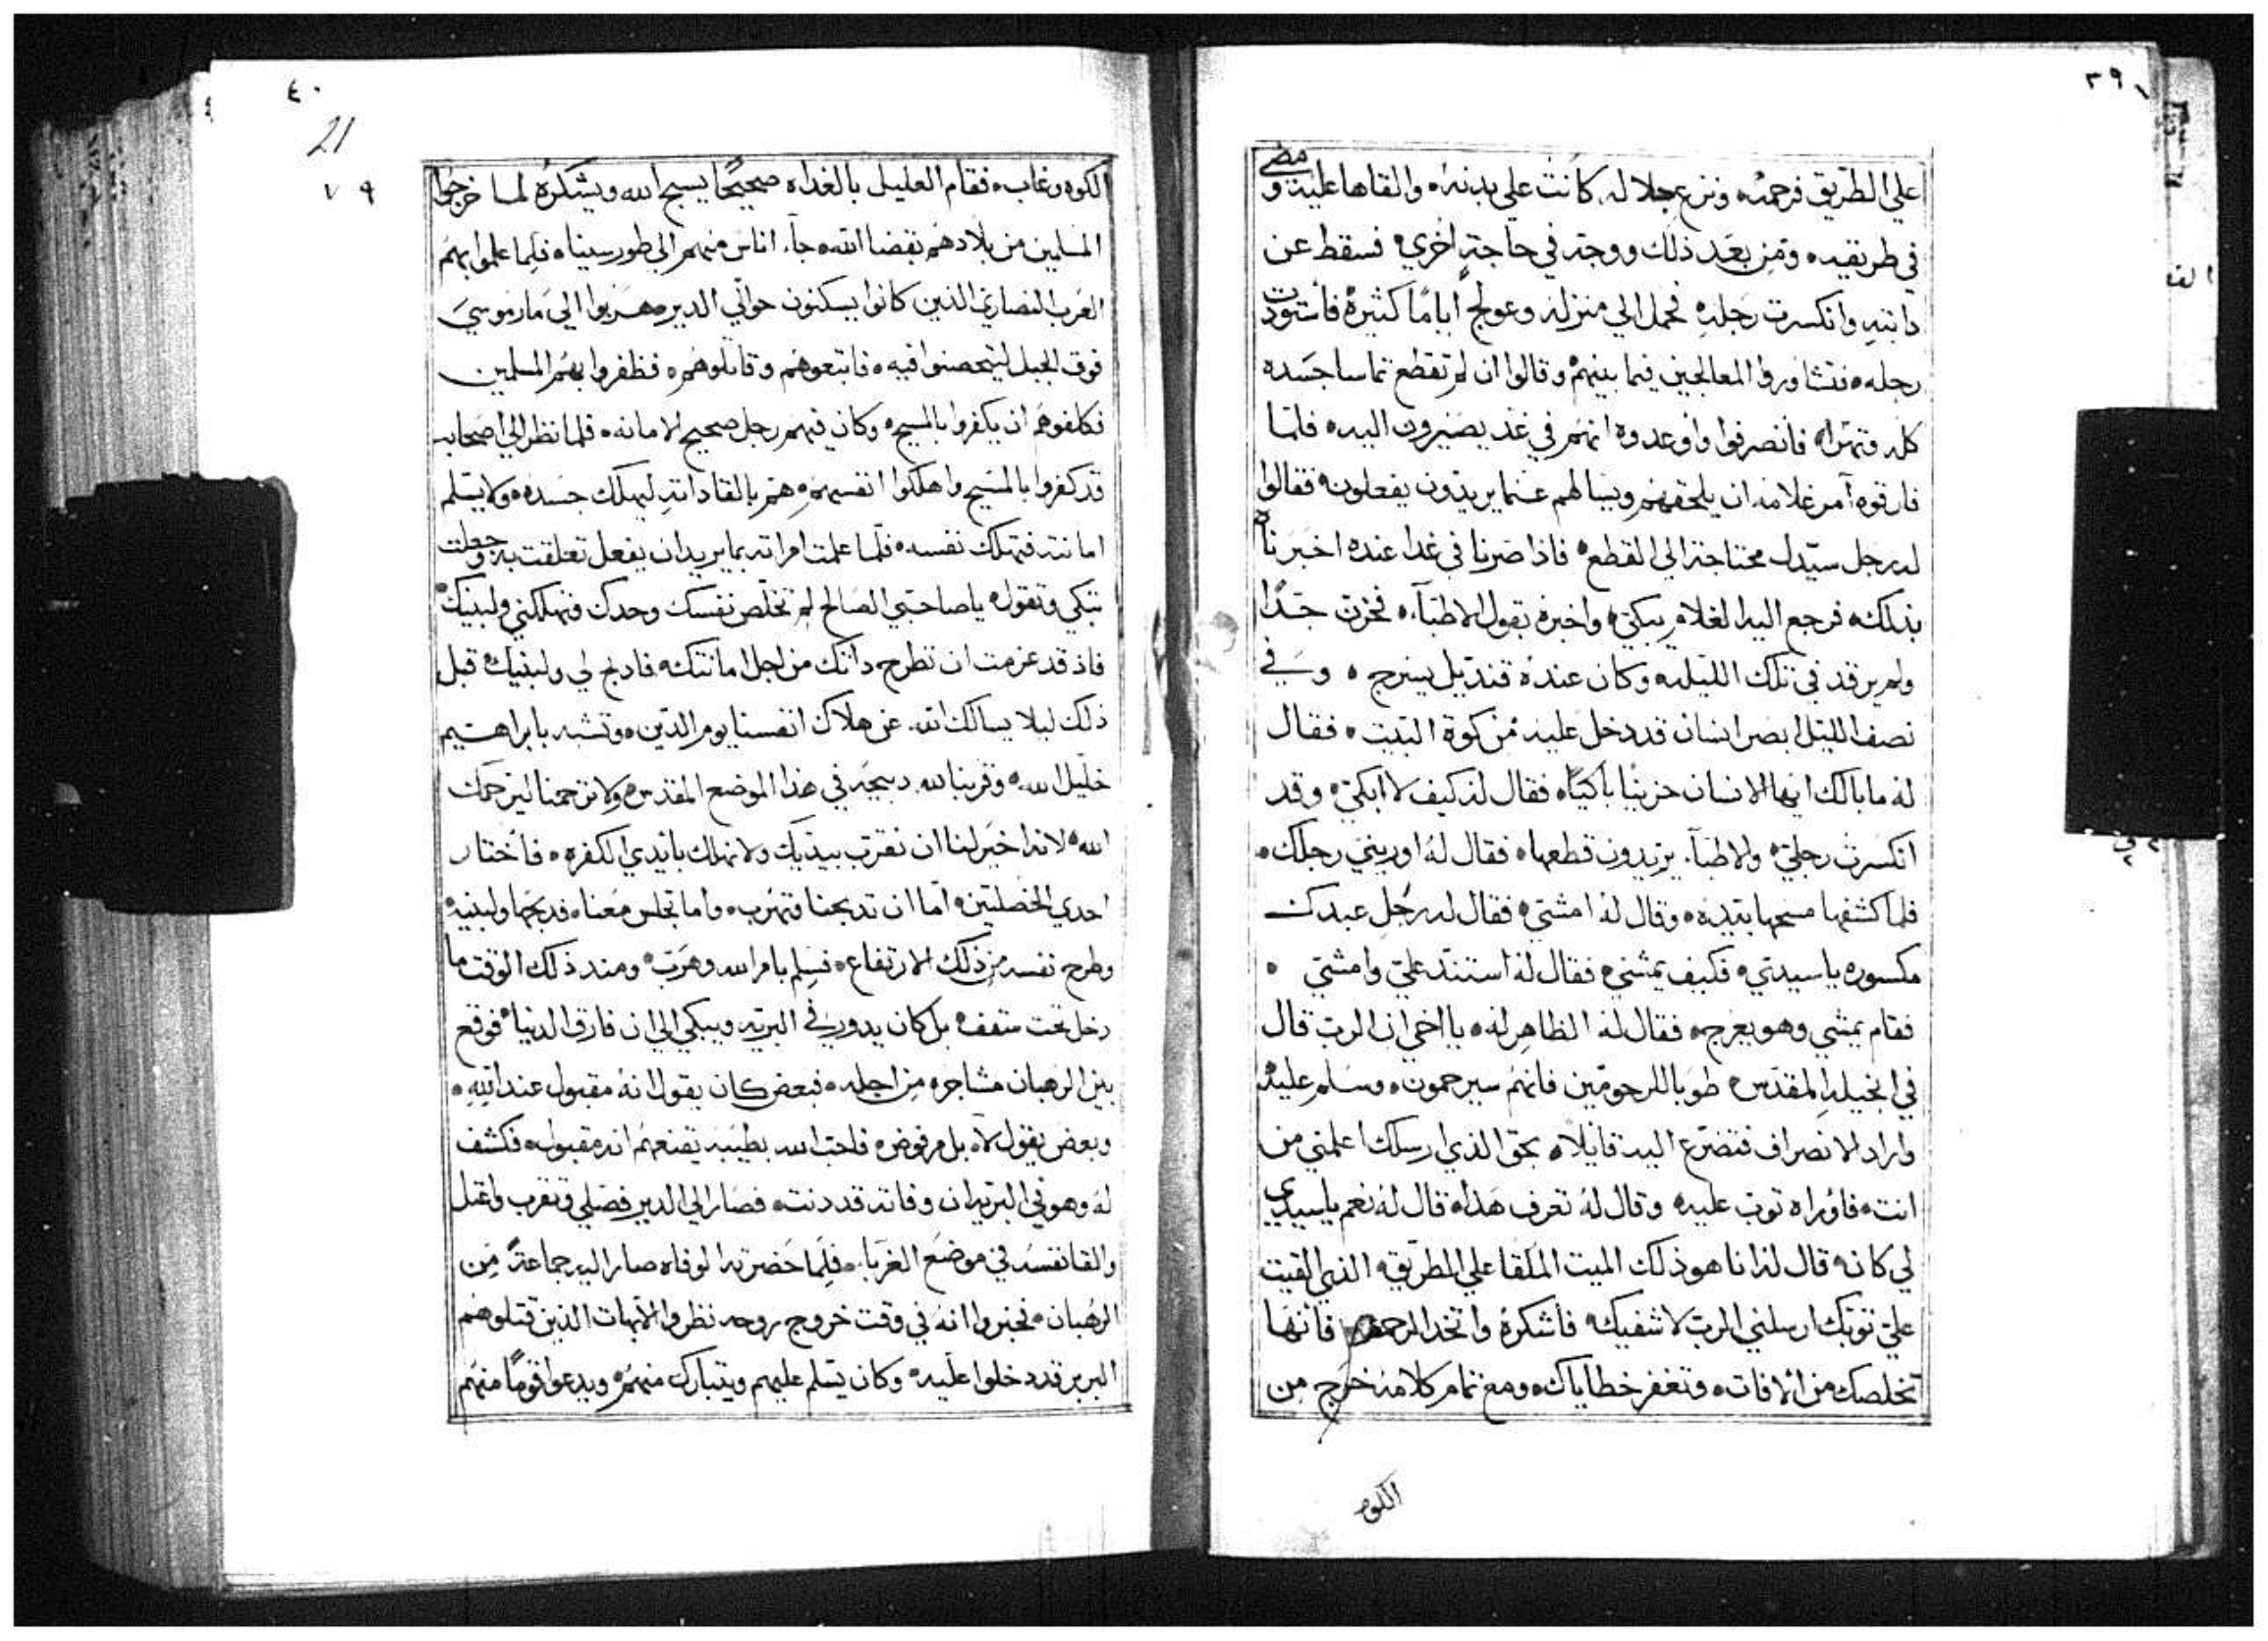 ٣٩
على الطريق فرحمه ونزع جلا له كانت على بدنه والقاها عليه ومضى
في طريقه ومن بعد ذلك ووجه في حاجة اخري فسقط عن
دابته وانكسرت رجله فحمل الي منزله وعولج اياما كثيرة فأستودت
رجله فتشاوروا المعالجين فيما بينهم وقالوا ان لم تقطع تماسا جسده
كله فانصرفوا واوعدوه انهم في غد يصيرون اليه فلما
فارقوه آمر غلامه ان يلحقهم ويسالهم عما يريدون يفعلونه فقالوا
له رجل سيدك محتاجة الي القطع فاذا صرنا في غدا عنده اخبرناه
بذلك فرجع اليه الغلام يبكي واخبره بقول الاطبآء فحزن جدا
ولم يرقد في تلك الليله وكان عنده قنديل يسرج وفي
نصف الليل ابصر انسان قد دخل عليه من كوة البيت فقال
له ما بالك ايها الانسان حزينا باكيا فقال له كيف لا ابكي وقد
انكسرت رجلي والاطبآء يريدون قطعها فقال له اوريني رجلك
فلما كشفها مسحها بيده وقال له امشي فقال له رجل عبدك
مكسوره يا سيدي فكيف يمشي فقال له استند علي وامشي
فقام يمشي وهو يعرج فقال له الظاهر له يا اخي ان الرب قال
في انجيله المقدس طوبا للرحومين فانهم سيرحمون وسلم عليه
واراد الانصراف فتضرع اليه قايلا بحق الذي ارسلك اعلمني من
انت فأوراه توب عليه وقال له تعرف هذا قال له نعم يا سيدي
لي كانه قال له انا هو ذلك الميت الملقا علي الطريق الذي القيت
علي توبك ارسلني الرب لاشفيك فأشكره واتخد الرحمه فأنها
تخلصك من الافات وتغفر خطاياك ومع تمام كلامه خرج من
الكوه
٤٠
21
٧٩
الكوه وغاب فقام العليل بالغداه صحيحا يسبح الله ويشكره لما خرجوا
المسلمين من بلادهم بقضا الله جآء اناس منهم الي طور سينا فلما علموا بهم
العرب النصاري الذين كانوا يسكنون حوالي الدير هربوا الي مار موسي
فوق الجبل ليتحصنوا فيه فاتبعوهم وقاتلوهم فظفروا بهم المسلمين
فكلفوهم ان يكفروا بالمسيح وكان فيهم رجل صحيح الامانه فلما نظر الي اصحابه
قد كفروا بالمسيح واهلكوا انفسهم هم بالقا داته ليهلك جسده ولا يسلم
امانته فتهلك نفسه فلما علمت امراته بما يريد ان يفعل تعلقت به وجعلت
تبكي وتقول يا صاحبي الصالح لم تخلص نفسك وحدك وتهلكني ولبنيك
فاذ قد عزمت ان تطرح داتك من اجل امانتك فادبح لي ولبنيك قبل
ذلك ليلا يسالك الله عن هلاك انفسنا يوم الدين وتشبه بابراهيم
خليل الله وقربنا لله دبيحه في هذا الموضع المقدس ولا ترحمنا ليرحمك
الله لانه اخير لنا ان نقترب بيديك ولا نهلك بايدي الكفره فأختار
احدي الخصلتين اما ان تدبحنا فتهرب واما تجلس معنا فدبحها ولبنيه
وطرح نفسه من ذلك الارتفاع فسلم بامر الله وهرب ومند ذلك الوقت ما
دخل تحت سقف بل كان يدور في البريه ويبكي الي ان فارق الدنيا فوقع
بين الرهبان مشاجره من اجله فبعض كان يقول انه مقبول عند الله
وبعض يقول لا بل مرفوض فاحب الله بطيبه يقنعهم انه مقبول فكشف
له وهو في البريه ان وفاته قد دنت فصار الي الدير فصلي وتقرب
والقا نفسه في موضع الغربا فلما حضرته الوفاه صار اليه جماعة من
الرهبان فخبروا انه في وقت خروج روحه نظروا الابهات الذين قتلوهم
البربر قد دخلوا عليه وكان يسلم عليهم ويتبارك منهم ويدعوا قوما منهم